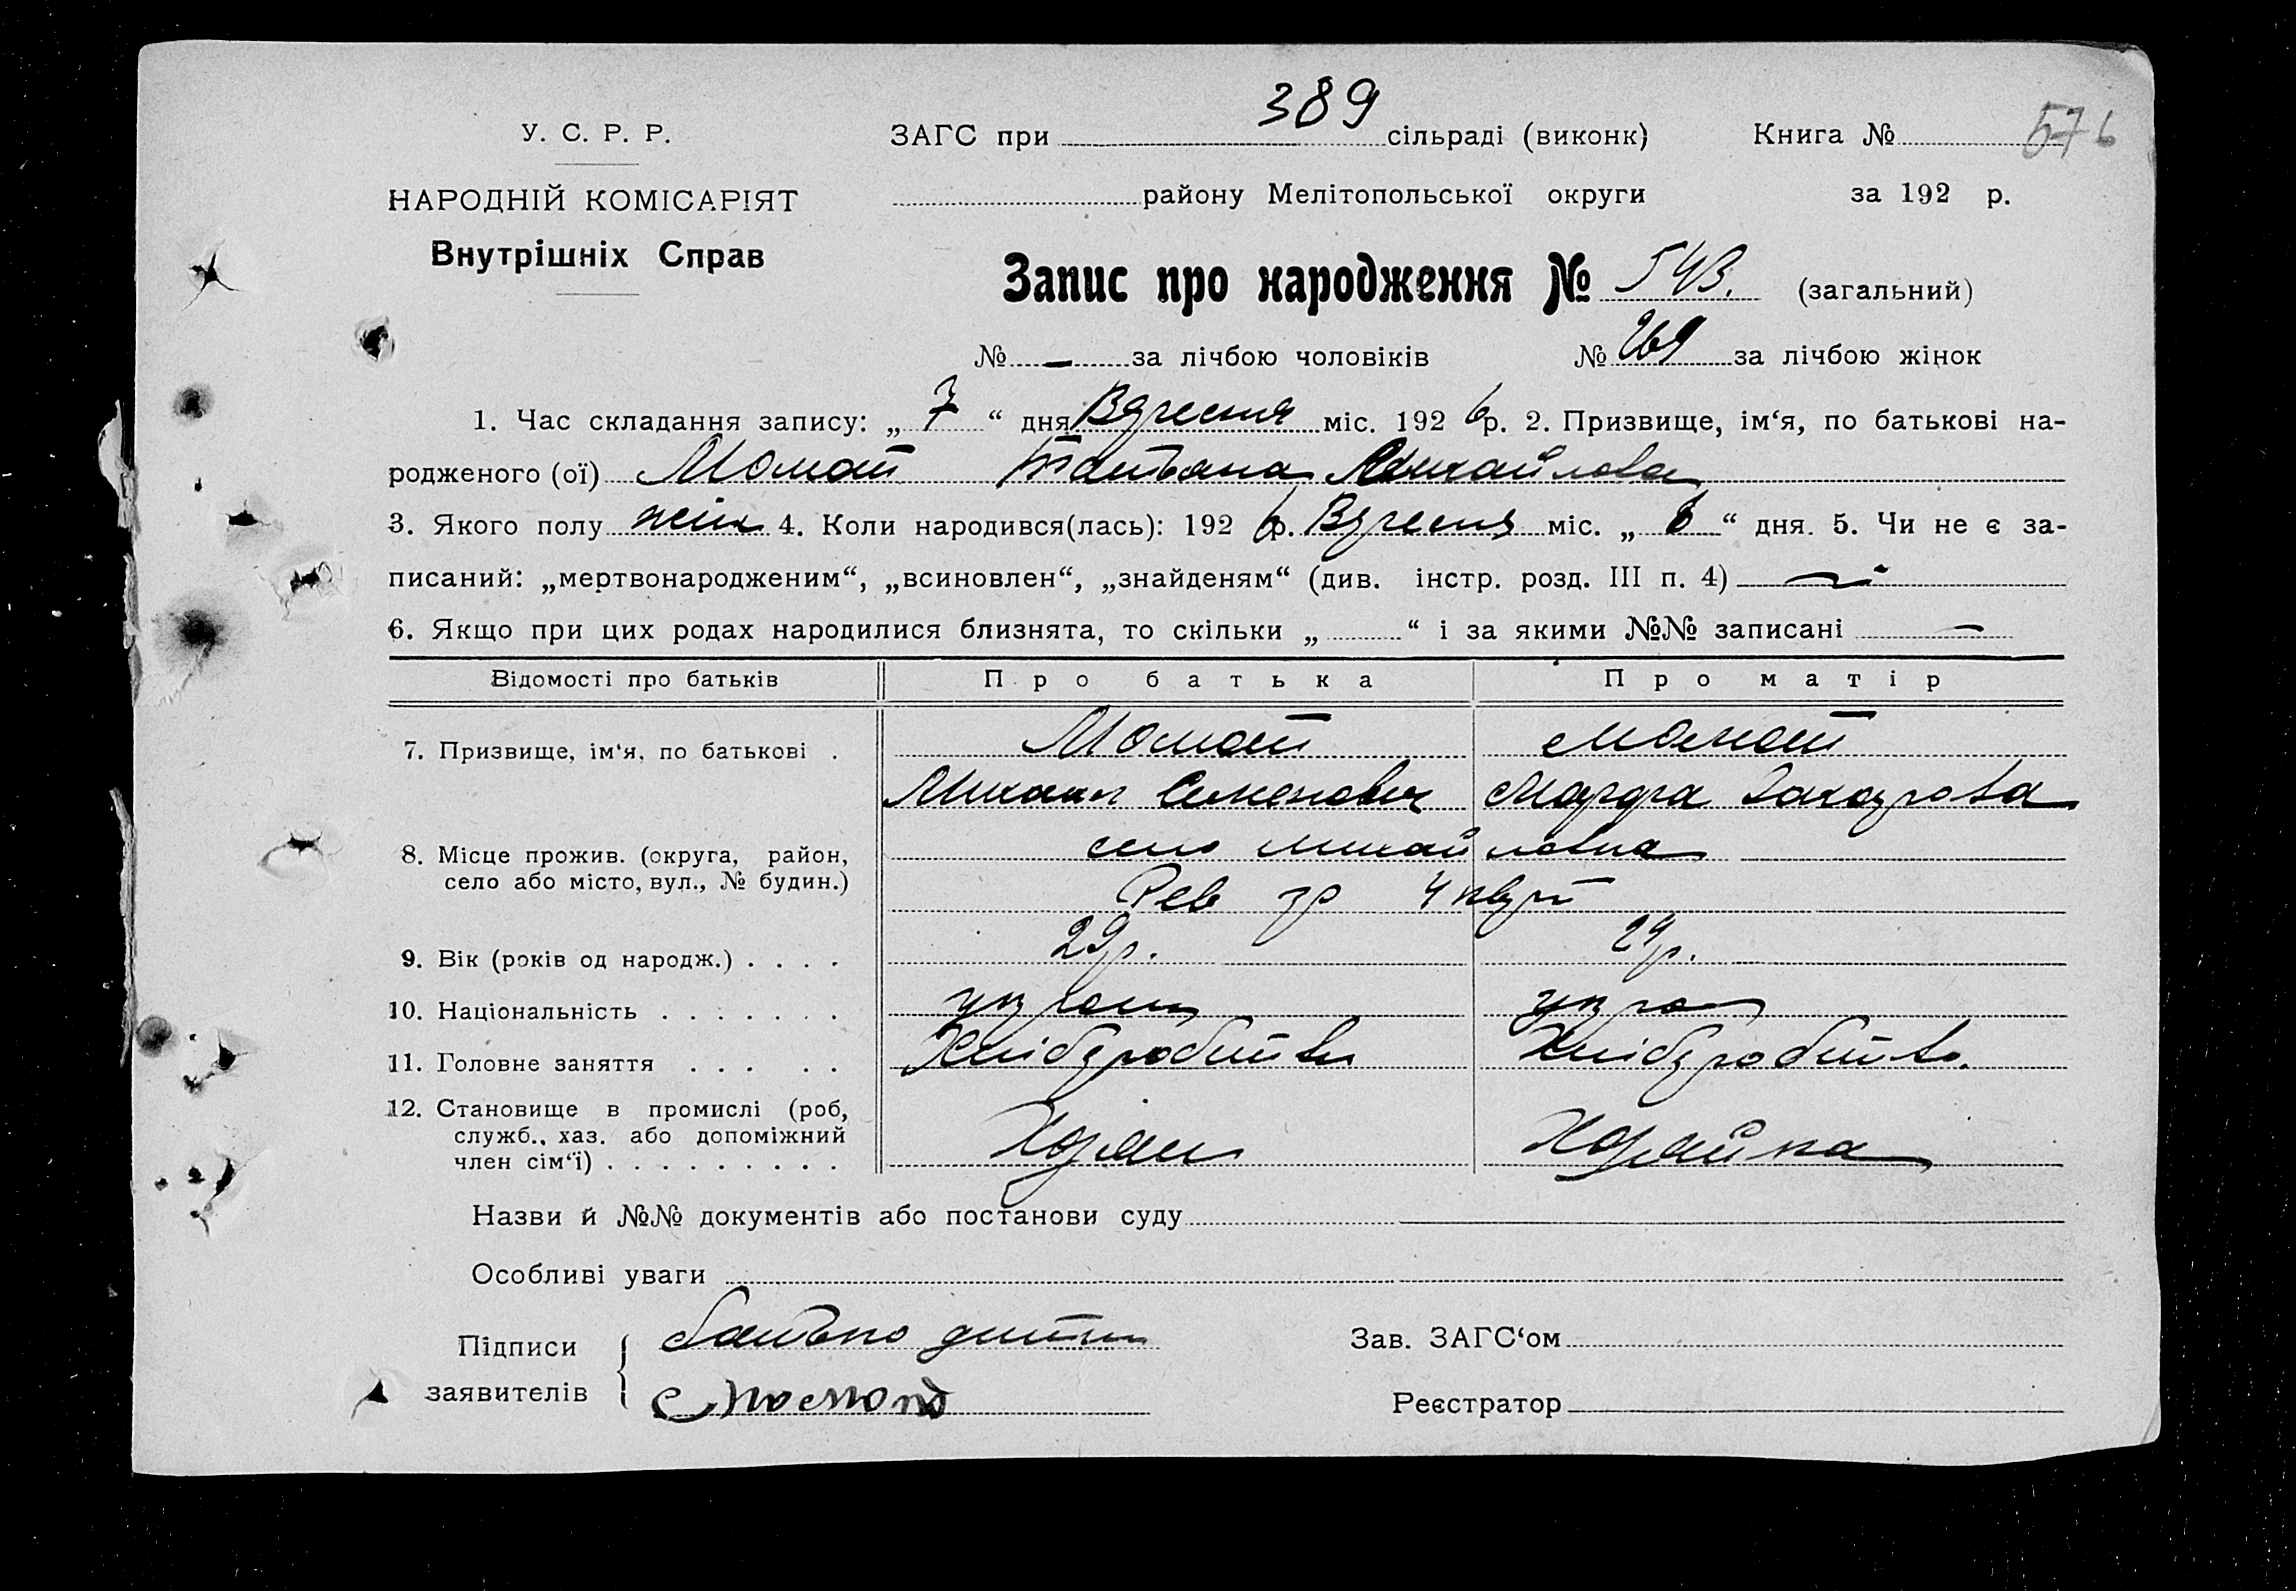 389
У. С. Р. Р. ЗАГС при сільраді (виконк) Книга № 576
НАРОДНІЙ КОМІСАРІЯТ району Мелітопольської округи за 192 р.
Внутрішніх Справ
Запис про народження № 543. (загальний)
№ – за лічбою чоловіків № 269 за лічбою жінок
1. Час складання запису: „ 7 “ дня Вересня міс. 192 6 р. 2. Призвище, ім‘я, по батькові на-
родженого (ої) Момот Татьана Михайлова
3. Якого полу жін 4. Коли народився(лась): 192 6 р. Вересня міс. „ 6 “ дня. 5. Чи не є за-
писаний: „мертвонародженим“, „всиновлен“, „знайденям“ (див. інстр. розд. III п. 4)
6. Якщо при цих родах народилися близнята, то скільки „ “ і за якими №№ записані –
Відомості про батьків Про батька Про матір
7. Призвище, ім‘я, по батькові . Момот Момот
Михаил Семенович Марфа Захарова
8. Місце прожив. (округа, район, село Михайловка
село або місто, вул., № будин.) Рев 4 кварт
9. Вік (років од народж.) . . . . 29р. 29р.
10. Національність . . . . . . . украин укра
11. Головне заняття . . . . . Хлібробитво Хлібробитво.
12. Становище в промислі (роб,
служб., хаз. або допоміжний Хазяин Хазяйка
член сім‘ї) . . . . . . . . .
Назви й №№ документів або постанови суду
Особливі уваги
Підписи батько дитини Зав. ЗАГС‘ом
заявителів Момот Реєстратор